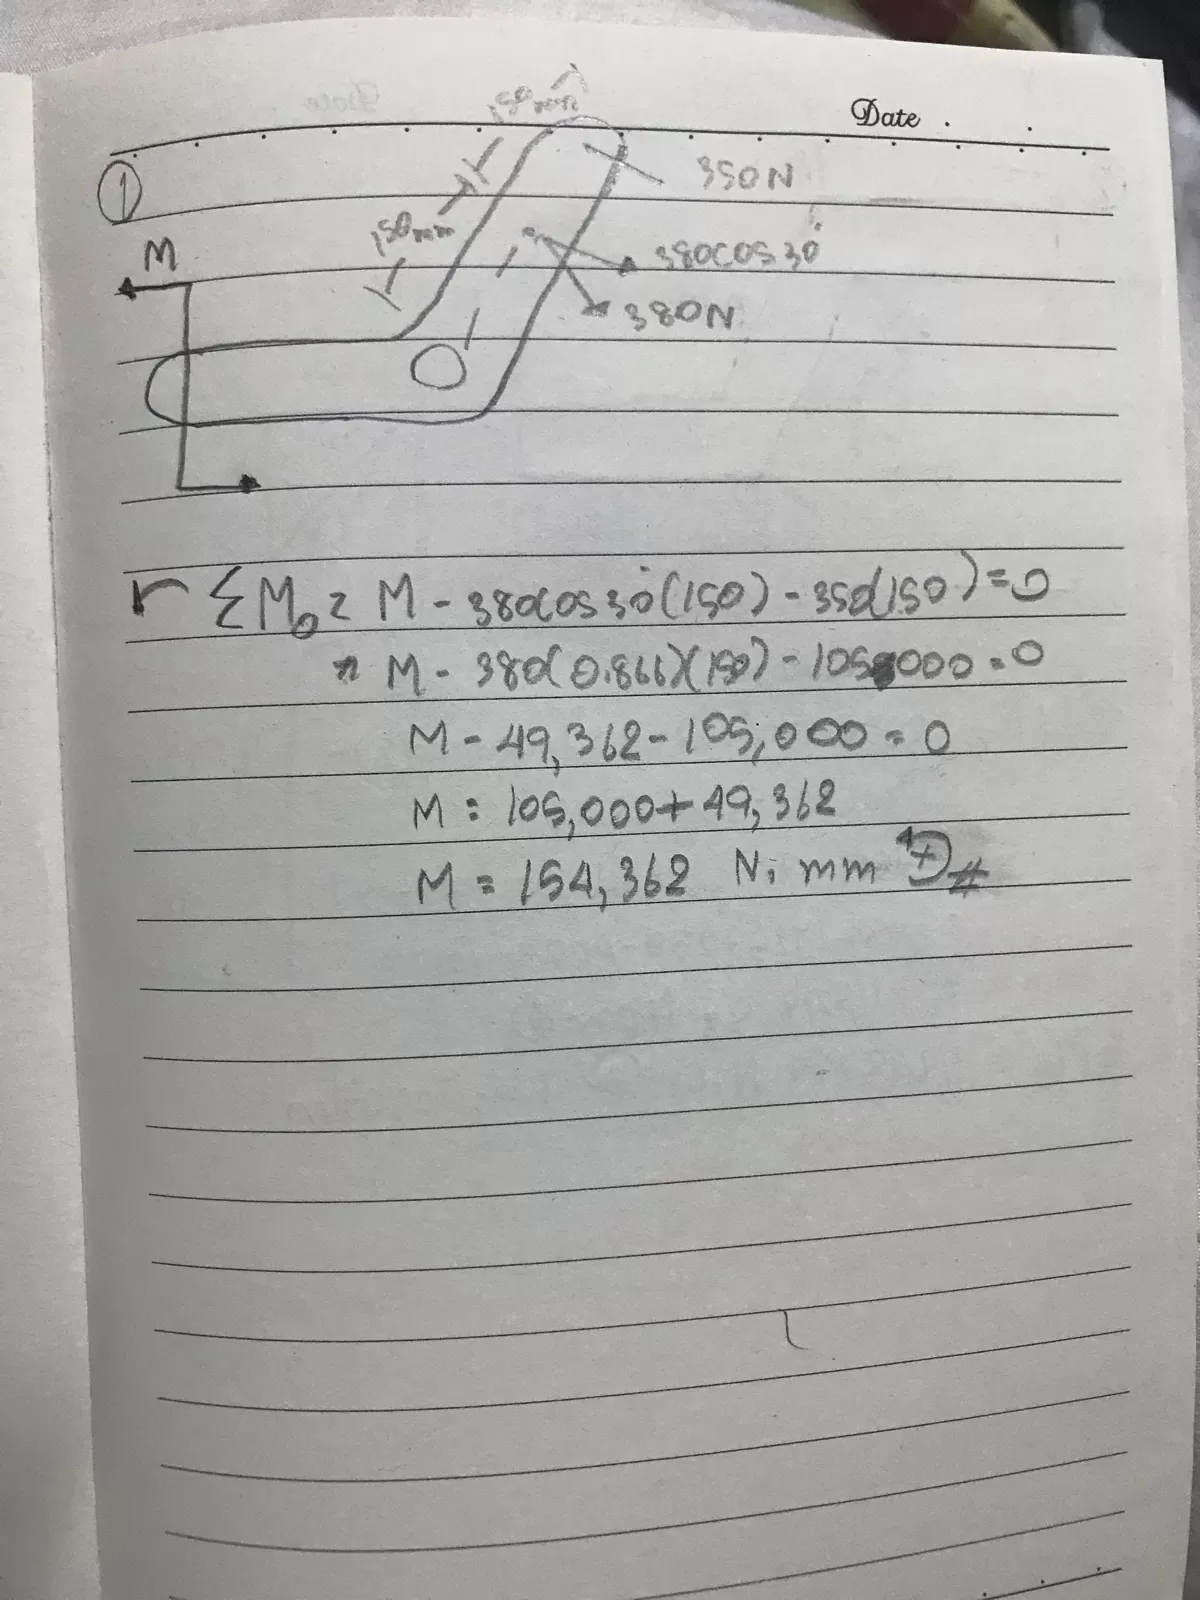 Date
150mm
①
350N
150mm
M
380cos30°
380N
ΣMo = M - 380cos30°(150) - 350(150) = 0
= M - 380(0.866)(150) - 105,000 = 0
M - 49,362 - 105,000 = 0
M = 105,000 + 49,362
M = 154,362 N·mm